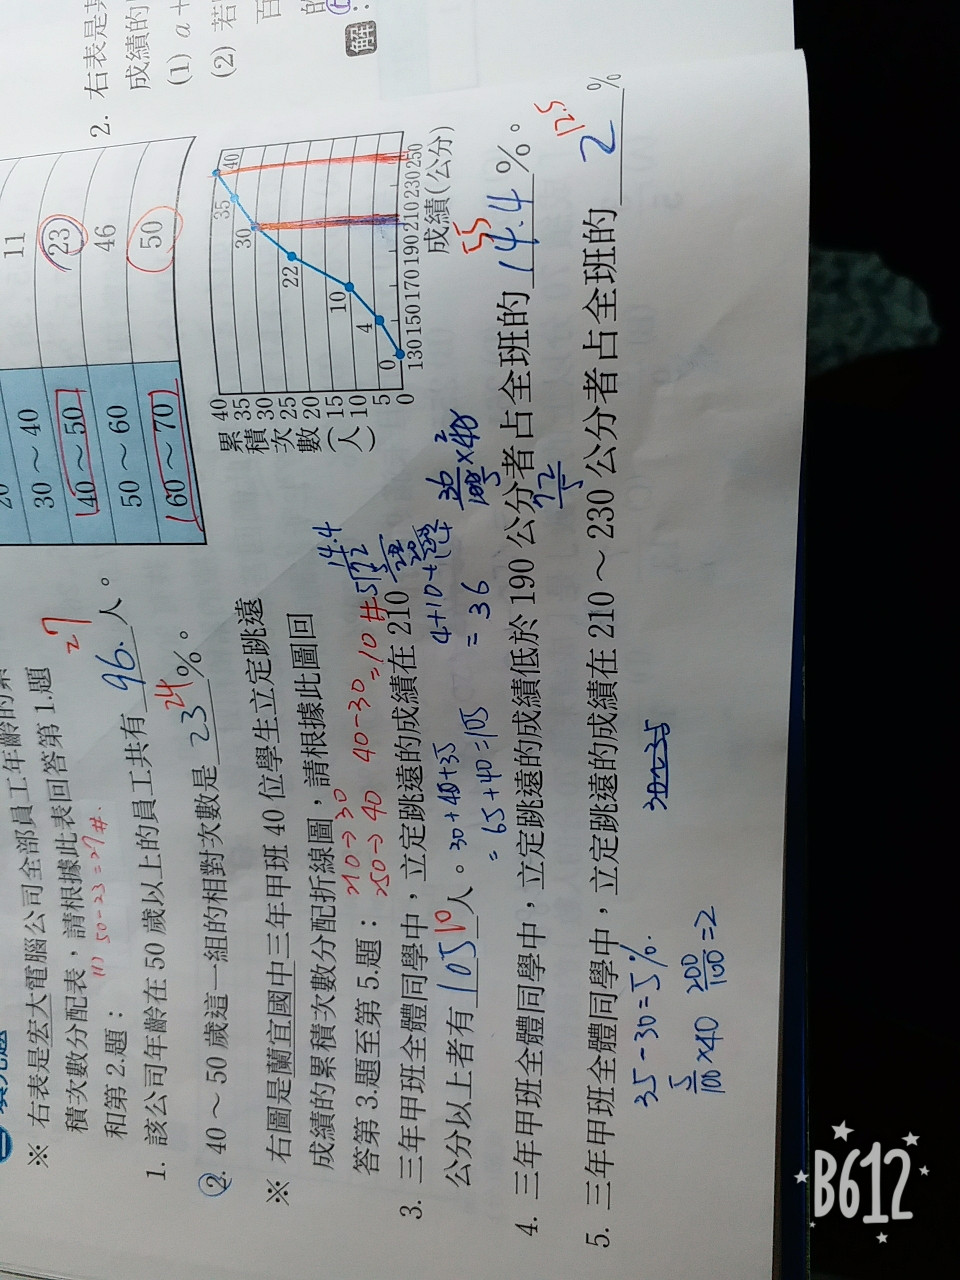 ※ 右表是宏大電腦公司全部員工年齡的累
積次數分配表，請根據此表回答第1.題
和第2.題：
(1) 50-23=27#
27
1. 該公司年齡在50歲以上的員工共有96.人。
24
2. 40～50歲這一組的相對次數是23%。
11
30～40 23
40～50 46
50～60
60～70 50
※ 右圖是蘭宜國中三年甲班40位學生立定跳遠
成績的累積次數分配折線圖，請根據此圖回
答第3.題至第5.題：
210→30
250→40 40-30=10#
14.4
5)72
3. 三年甲班全體同學中，立定跳遠的成績在210
公分以上者有105 10人。
30+40+35
=65+40=105
4+10+22
=36
36/100×40
72/5
累積次數(人)
40
35
30
25
20
15
10
5
0
0 4 10 22 30 35 40
130 150 170 190 210 230 250
成績(公分)
55
4. 三年甲班全體同學中，立定跳遠的成績低於190公分者占全班的14.4%。
12.5
5. 三年甲班全體同學中，立定跳遠的成績在210～230公分者占全班的2%
35-30=5%.
5/100×40 200/100=2
2. 右表是某
成績的
(1) a+
(2) 若
百
的
解
B612